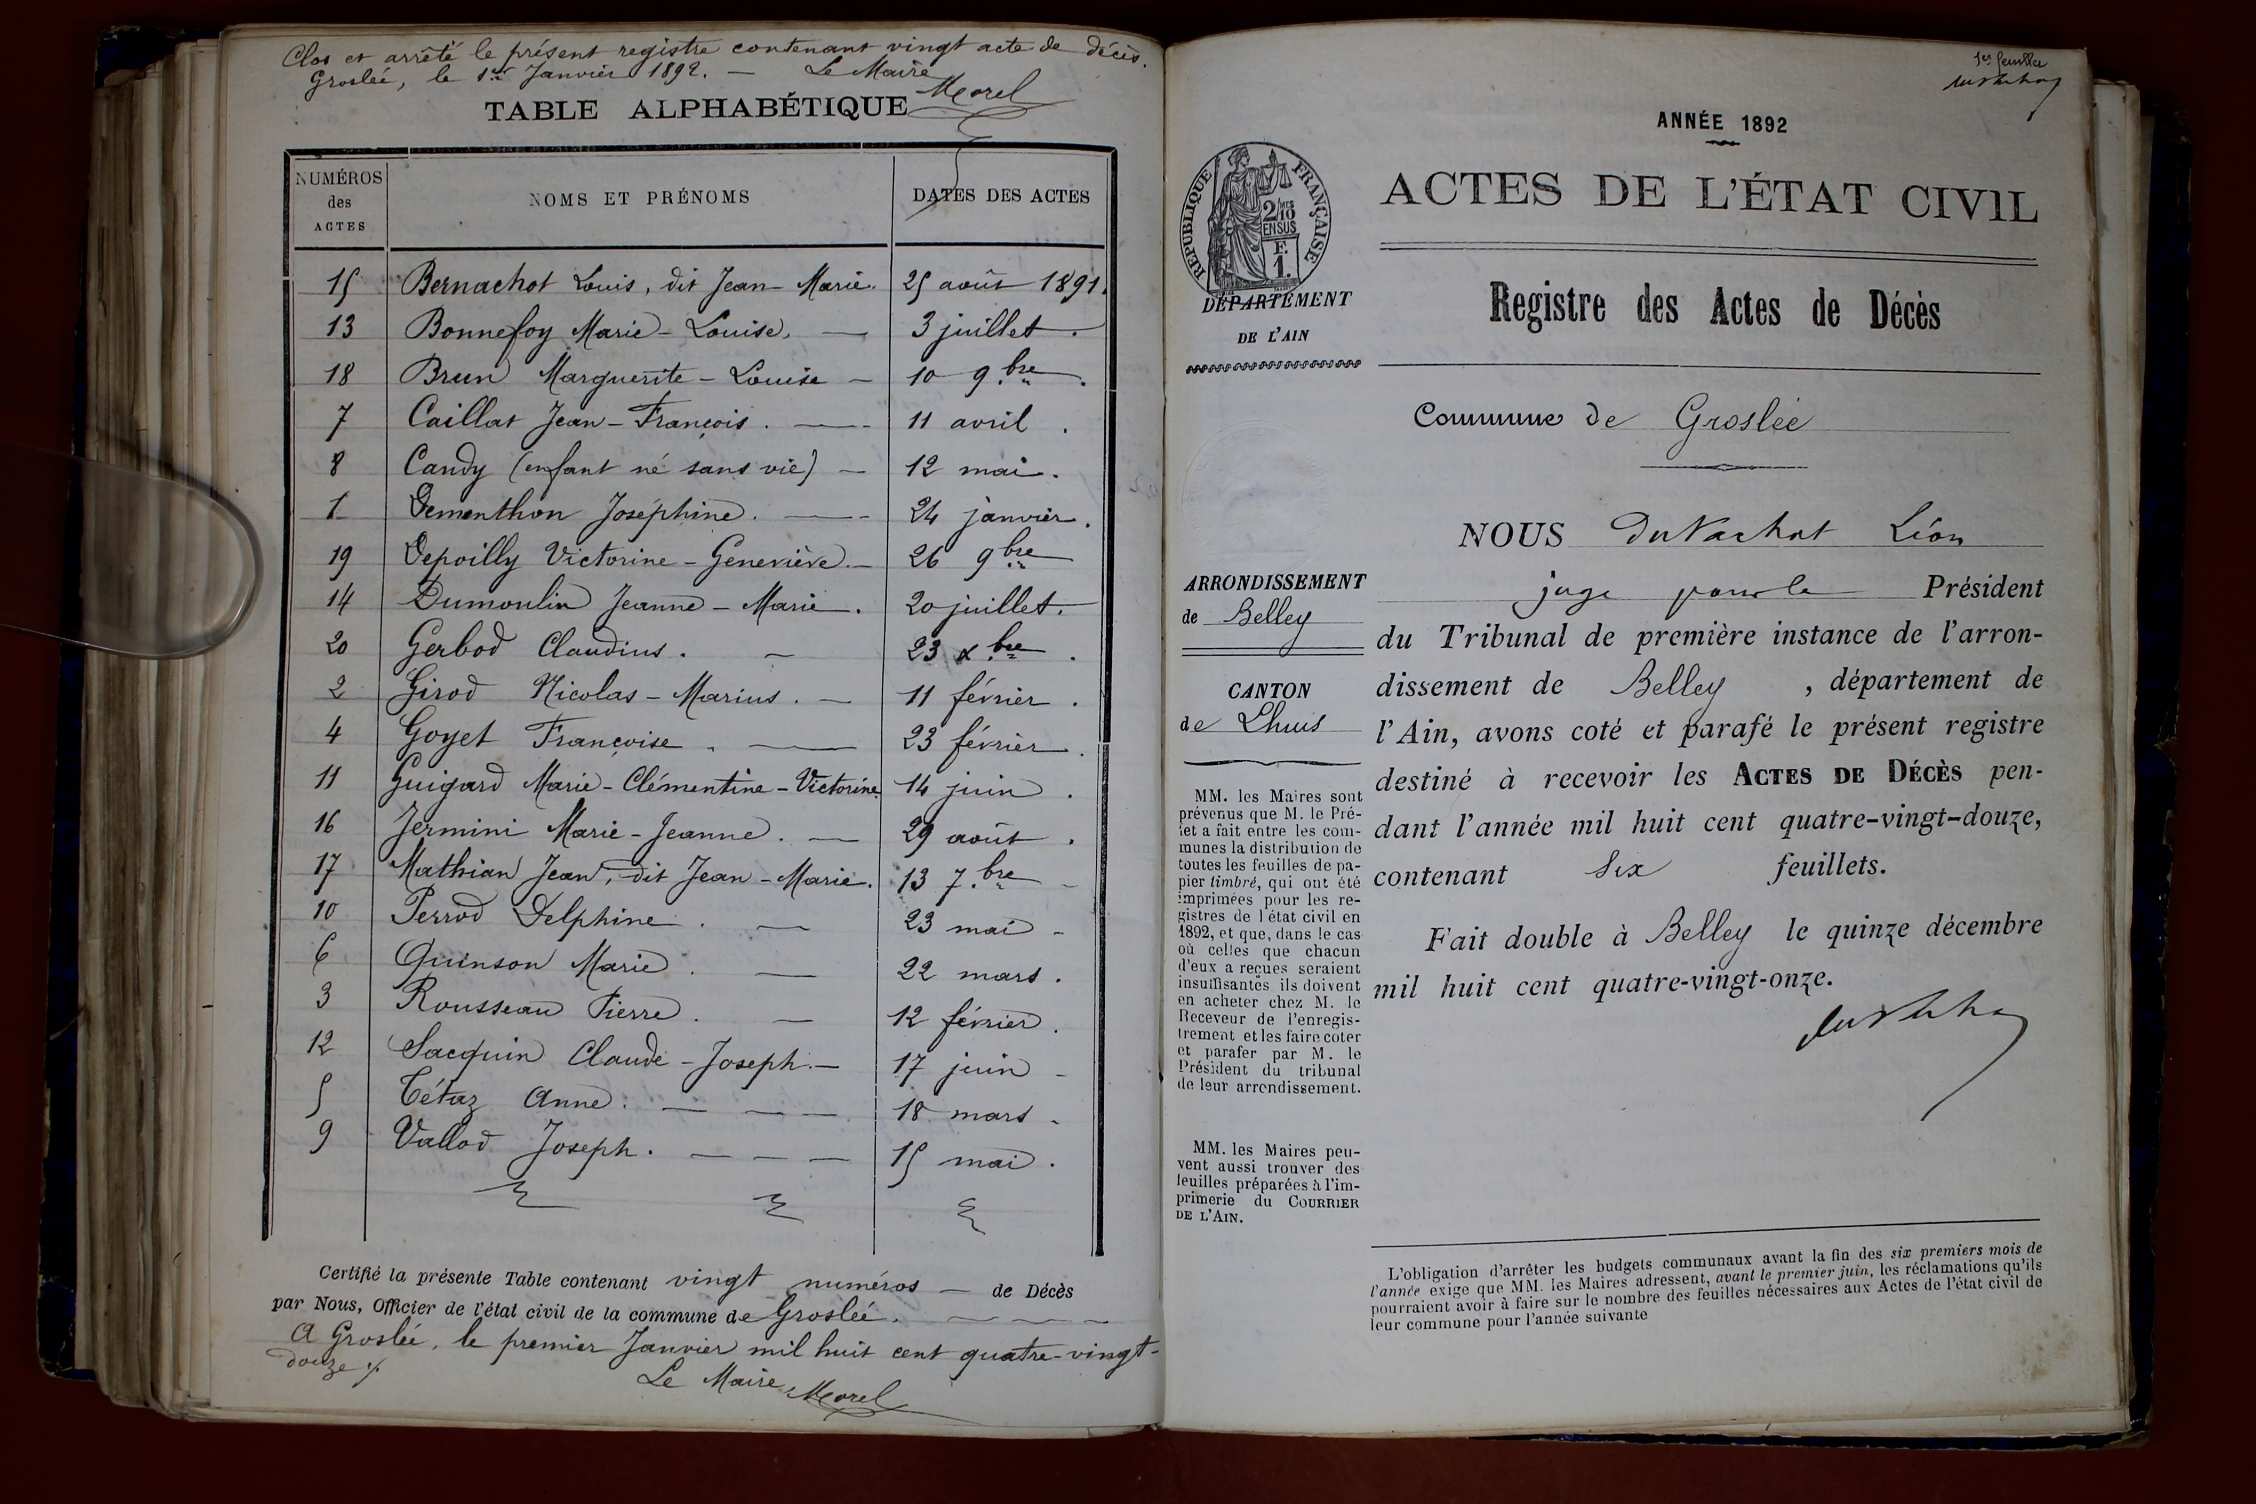 Clos et arrêté le présent registre contenant vingt acte de décès.
Groslée, le 1er Janvier 1892. — Le Maire
Morel
TABLE ALPHABÉTIQUE
NUMÉROS des ACTES | NOMS ET PRÉNOMS | DATES DES ACTES
15 Bernachot Louis, dit Jean-Marie. 25 août 1891.
13 Bonnefoy Marie-Louise. — 3 juillet.
18 Brun Marguerite-Louise — 10 9.bre.
7 Caillat Jean-François. — 11 avril.
8 Candy (enfant né sans vie) — 12 mai.
1 Dementhon Joséphine. — 24 janvier.
19 Depoilly Victorine-Geneviève. — 26 9.bre
14 Dumoulin Jeanne-Marie. 20 juillet.
20 Gerbod Claudius. — 23 Xbre.
2 Girod Nicolas-Marius. — 11 février.
4 Goyet Françoise. — 23 février.
11 Guigard Marie-Clémentine-Victorine. 14 juin.
16 Jermini Marie-Jeanne. — 29 août.
17 Mathian Jean, dit Jean-Marie. 13 7.bre -
10 Perrod Delphine. — 23 mai -
6 Quinson Marie. — 22 mars.
3 Rousseau Pierre. — 12 février.
12 Sacquin Claude-Joseph. — 17 juin -
5 Tétaz Anne. — — — 18 mars -
9 Vallod Joseph. — — — 15 mai.
Certifié la présente Table contenant vingt numéros — de Décès
par Nous, Officier de l'état civil de la commune de Groslée. — — —
A Groslée, le premier Janvier mil huit cent quatre-vingt-
douze
Le Maire, Morel
1er feuillet
ANNÉE 1892
ACTES DE L'ÉTAT CIVIL
RÉPUBLIQUE FRANÇAISE
2/10 EN SUS
F. 1.
DÉPARTEMENT
DE L'AIN
Registre des Actes de Décès
Commune de Groslée
NOUS Du Vachat Léon
juge pour le Président
du Tribunal de première instance de l'arron-
dissement de Belley, département de
l'Ain, avons coté et parafé le présent registre
destiné à recevoir les ACTES DE DÉCÈS pen-
dant l'année mil huit cent quatre-vingt-douze,
contenant Six feuillets.
Fait double à Belley le quinze décembre
mil huit cent quatre-vingt-onze.
ARRONDISSEMENT
de Belley
CANTON
de Lhuis
MM. les Maires sont
prévenus que M. le Pré-
fet a fait entre les com-
munes la distribution de
toutes les feuilles de pa-
pier timbré, qui ont été
imprimées pour les re-
gistres de l'état civil en
1892, et que, dans le cas
où celles que chacun
d'eux a reçues seraient
insuffisantes ils doivent
en acheter chez M. le
Receveur de l'enregis-
trement et les faire coter
et parafer par M. le
Président du tribunal
de leur arrondissement.
MM. les Maires peu-
vent aussi trouver des
feuilles préparées à l'im-
primerie du COURRIER
DE L'AIN.
L'obligation d'arrêter les budgets communaux avant la fin des six premiers mois de
l'année exige que MM. les Maires adressent, avant le premier juin, les réclamations qu'ils
pourraient avoir à faire sur le nombre des feuilles nécessaires aux Actes de l'état civil de
leur commune pour l'année suivante